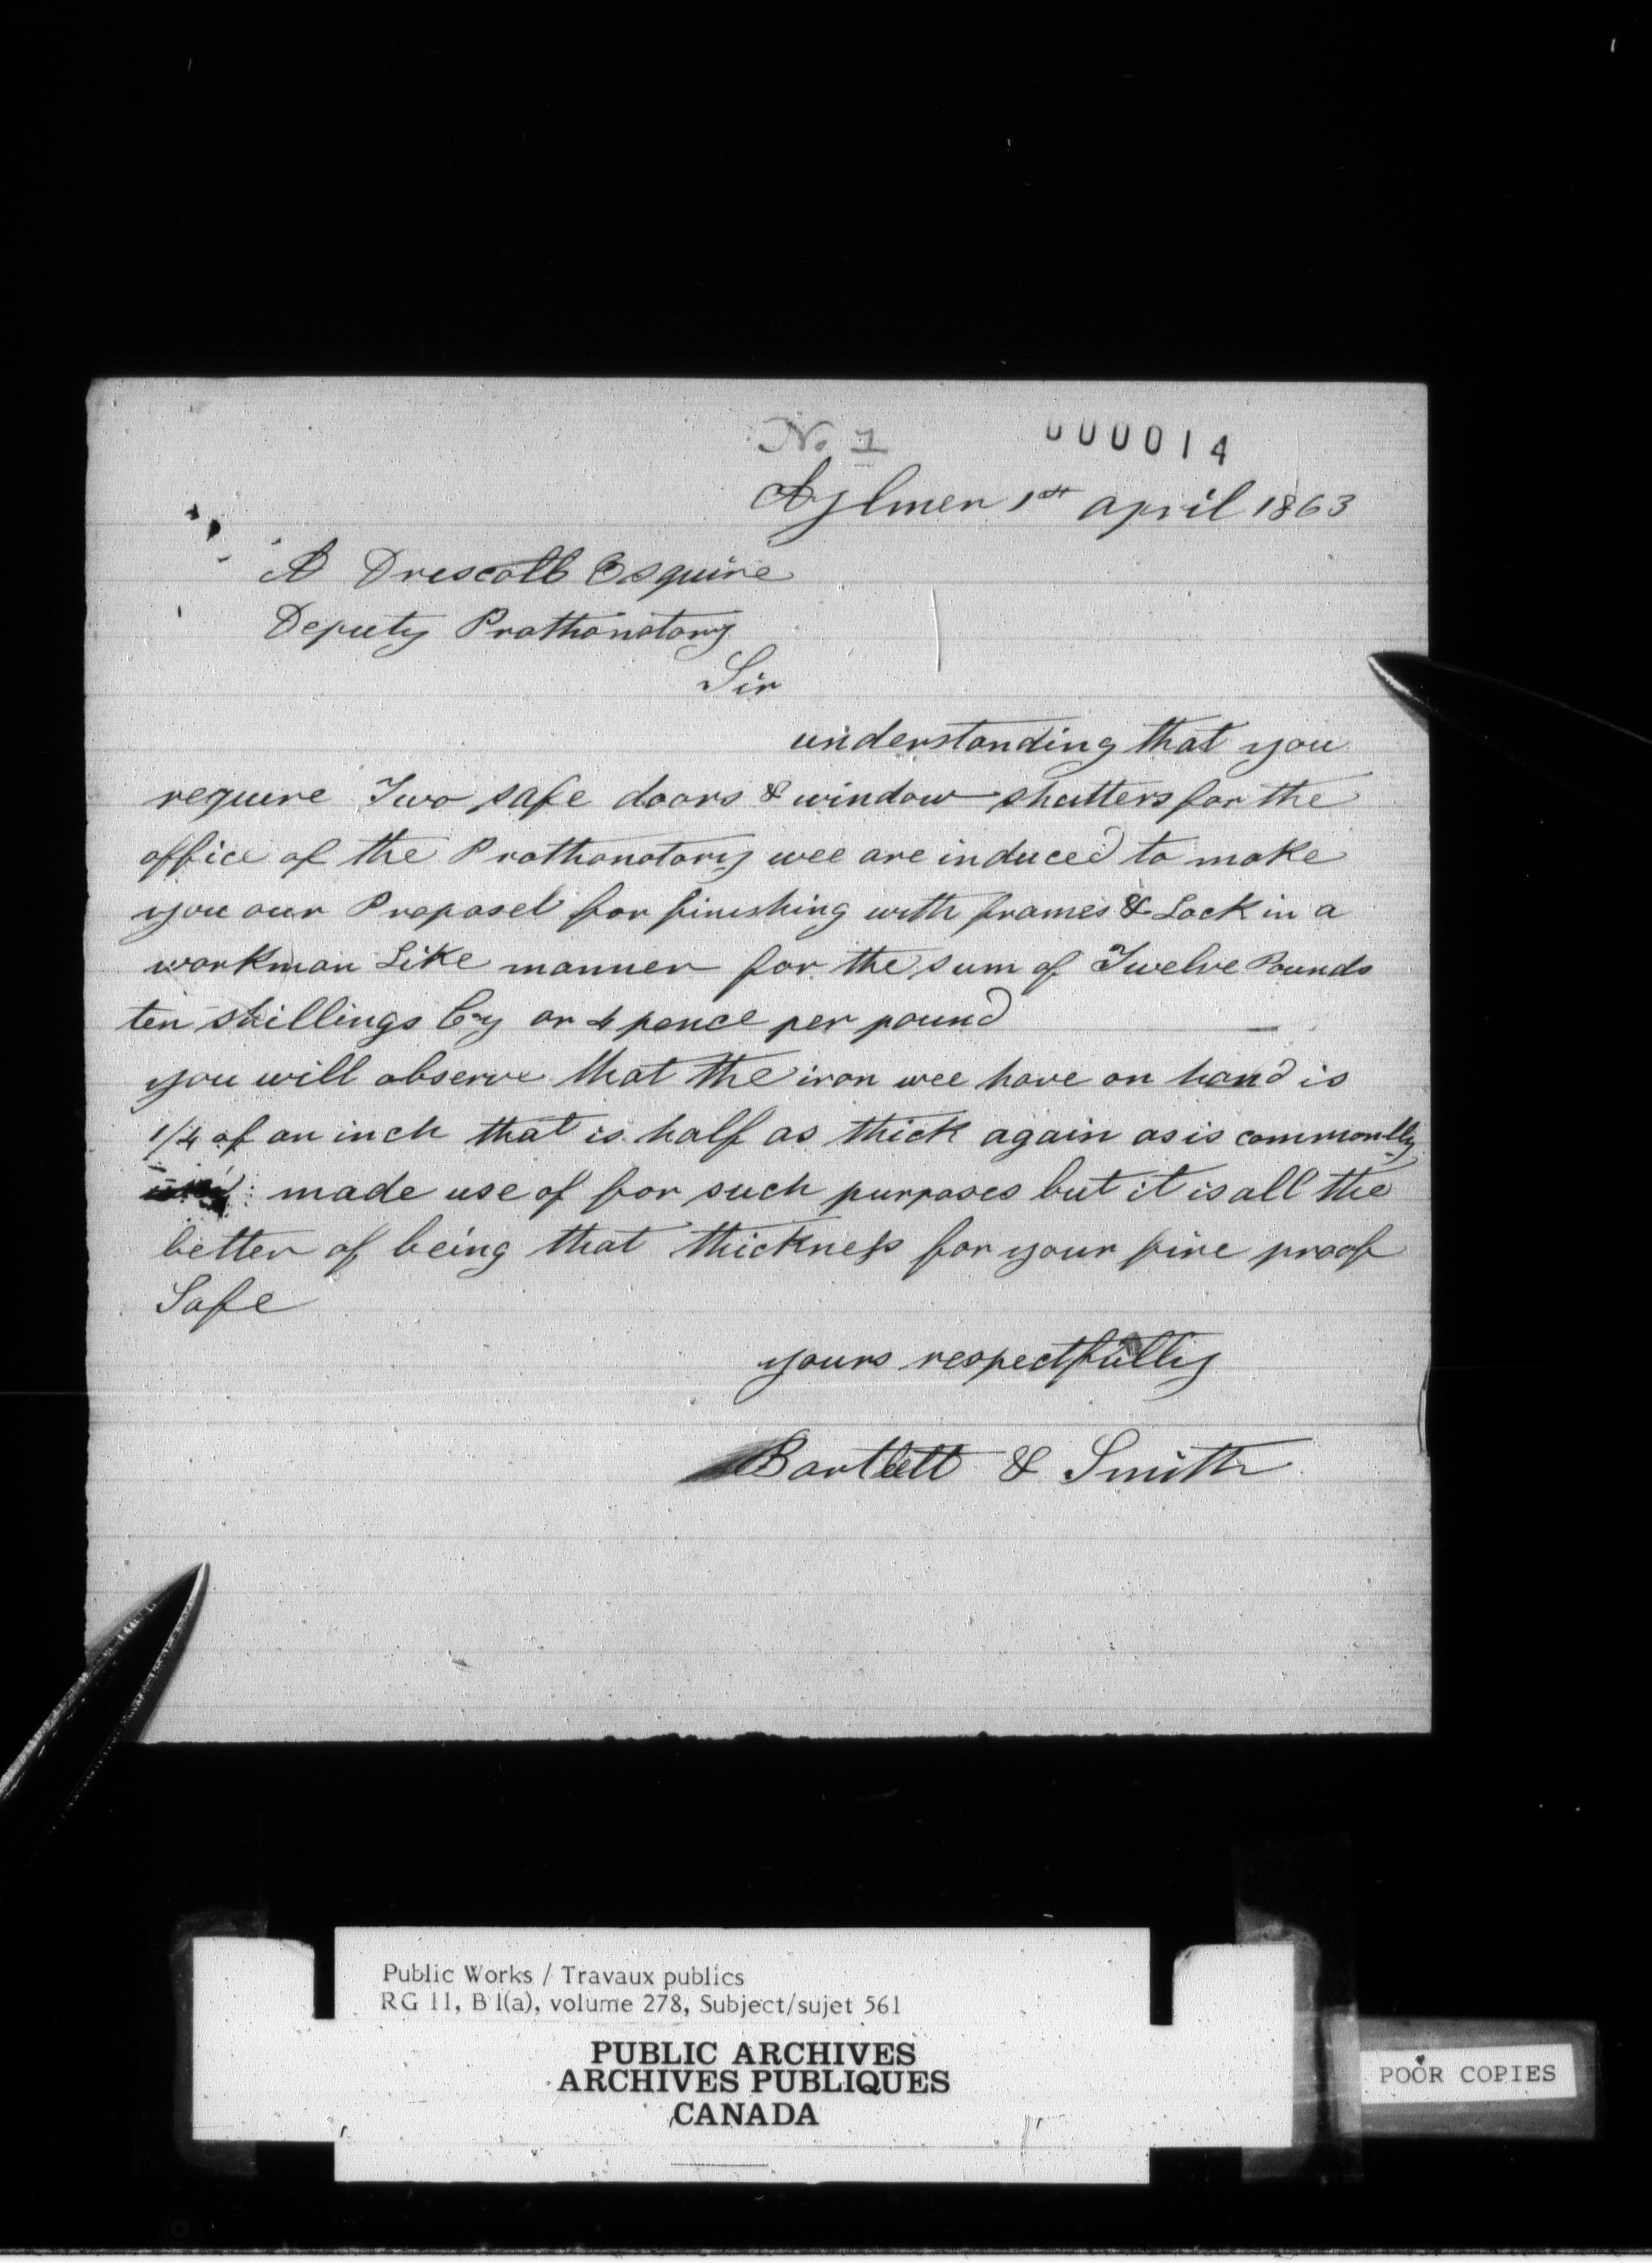 No 1
000014
Aylmer 1st april 1863
A Driscoll Esquire
Deputy Prothonotory
Sir
understanding that you
require Two safe doors & window shutters for the
office of the Prothonotory wee are induced to make
you our Proposel for finishing with frames & Lock in a
workman Like manner for the sum of Twelve Pounds
ten shillings Cy or 4 pence per pound
you will observe that the iron wee have on hand is
1/4 of an inch that is half as thick again as is commonlly
made use of for such purposes but it is all the
better of being that thickness for your fire proof
Safe
yours respectfully
Bartlett & Smith
Public Works / Travaux publics
RG 11, B 1(a), volume 278, Subject/sujet 561
PUBLIC ARCHIVES
ARCHIVES PUBLIQUES
CANADA
POOR COPIES